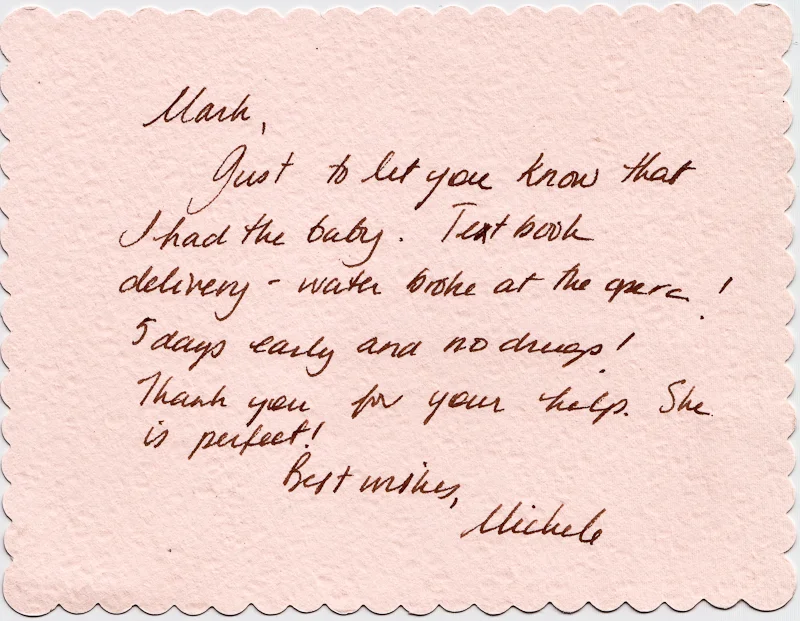 Mark,
Just to let you know that
I had the baby. Text book
delivery - water broke at the opera!
5 days early and no drugs!
Thank you for your help. She
is perfect!
Best wishes,
Michele